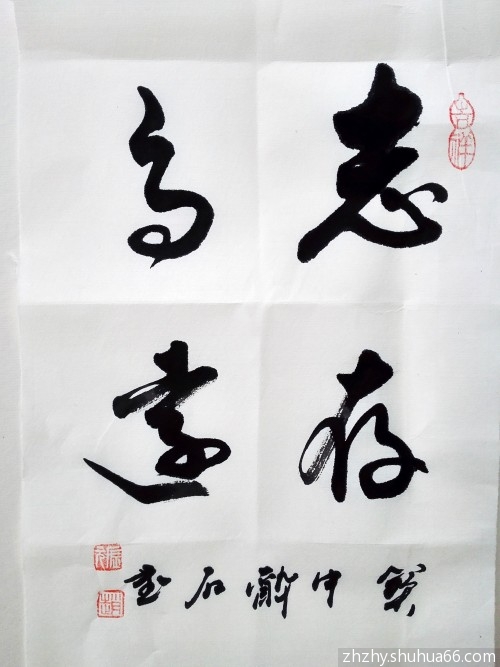 志存
高远
吉祥
石书
zhzhy.shuhua66.com